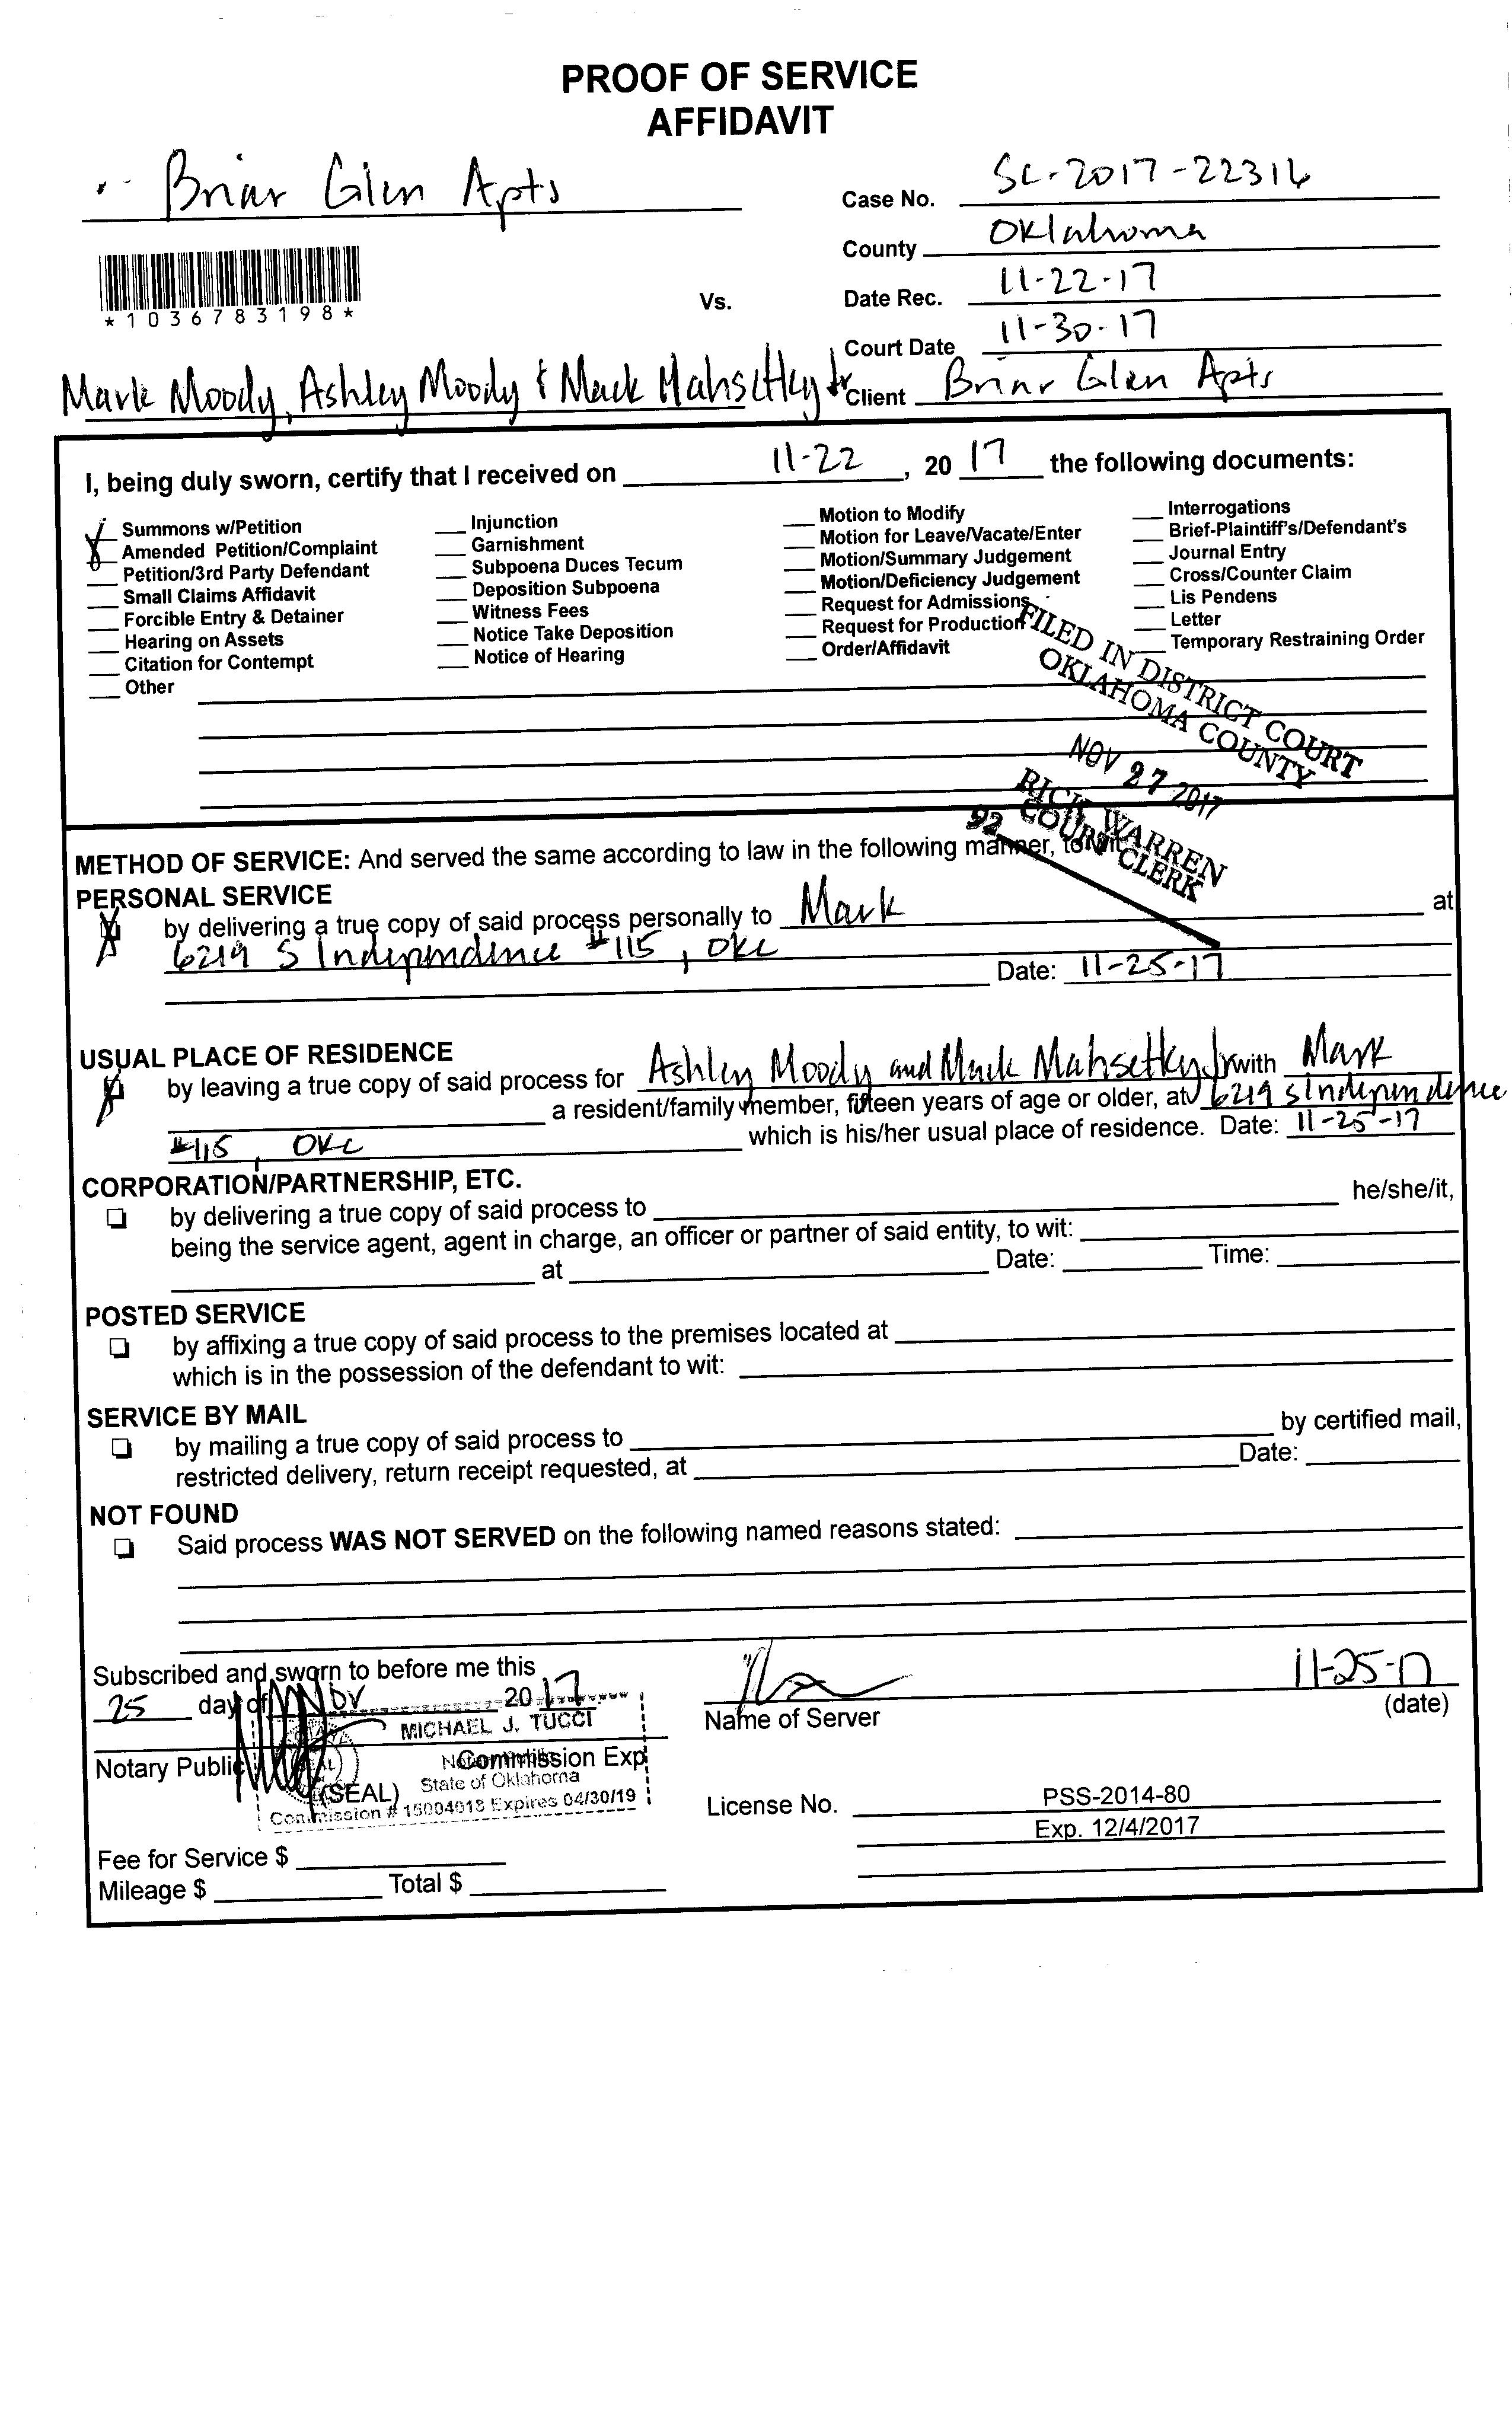 PROOF OF SERVICE
AFFIDAVIT
Briar Glen Apts
Case No. SC-2017-22316
County Oklahoma
*1036783198*
Vs.
Date Rec. 11-22-17
Court Date 11-30-17
Mark Moody, Ashley Moody & Mack Mahsetky Jr
Client Briar Glen Apts
I, being duly sworn, certify that I received on 11-22, 20 17 the following documents:
Summons w/Petition
Amended Petition/Complaint
Petition/3rd Party Defendant
Small Claims Affidavit
Forcible Entry & Detainer
Hearing on Assets
Citation for Contempt
Other
Injunction
Garnishment
Subpoena Duces Tecum
Deposition Subpoena
Witness Fees
Notice Take Deposition
Notice of Hearing
Motion to Modify
Motion for Leave/Vacate/Enter
Motion/Summary Judgement
Motion/Deficiency Judgement
Request for Admissions
Request for Production
Order/Affidavit
Interrogations
Brief-Plaintiff's/Defendant's
Journal Entry
Cross/Counter Claim
Lis Pendens
Letter
Temporary Restraining Order
FILED IN DISTRICT COURT
OKLAHOMA COUNTY
NOV 27 2017
RICK WARREN
COURT CLERK
92
METHOD OF SERVICE: And served the same according to law in the following manner, to wit:
PERSONAL SERVICE
by delivering a true copy of said process personally to Mark at
6219 S Independence #115, OKC
Date: 11-25-17
USUAL PLACE OF RESIDENCE
by leaving a true copy of said process for Ashley Moody and Mack Mahsetky Jr with Mark
a resident/family member, fifteen years of age or older, at 6219 S Independence
#115, OKC which is his/her usual place of residence. Date: 11-25-17
CORPORATION/PARTNERSHIP, ETC.
by delivering a true copy of said process to he/she/it,
being the service agent, agent in charge, an officer or partner of said entity, to wit:
at Date: Time:
POSTED SERVICE
by affixing a true copy of said process to the premises located at
which is in the possession of the defendant to wit:
SERVICE BY MAIL
by mailing a true copy of said process to by certified mail,
restricted delivery, return receipt requested, at Date:
NOT FOUND
Said process WAS NOT SERVED on the following named reasons stated:
Subscribed and sworn to before me this
25 day of Nov 20 17
11-25-17
Name of Server
(date)
MICHAEL J. TUCCI
Notary Public
Commission Exp
(SEAL)
State of Oklahoma
Commission # 15004018 Expires 04/30/19
License No. PSS-2014-80
Exp. 12/4/2017
Fee for Service $
Mileage $ Total $